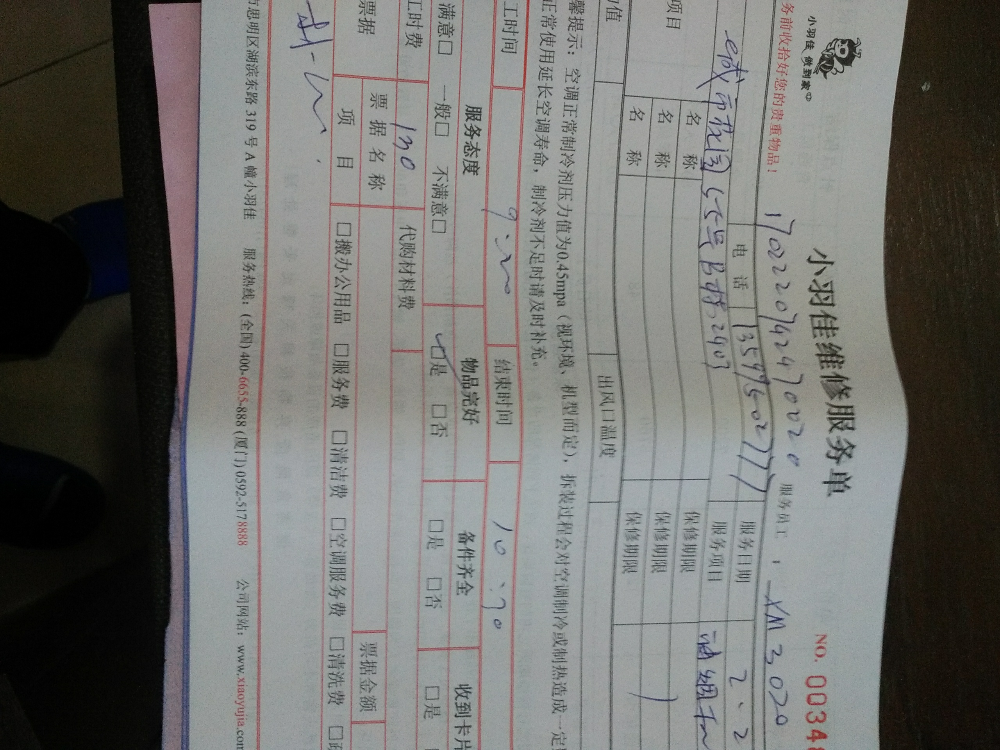 小羽佳 做到家
小羽佳维修服务单
NO. 00348
务前收拾好您的贵重物品!
1702220742470020 服务员工 : XM 3020
电 话 13599502777 服务日期 2、2
城市花园 55号B梯2903 服务项目 油烟机
项目 名 称 保修期限
名 称 保修期限
名 称 保修期限
值 出风口温度
馨提示:空调正常制冷剂压力值为0.45mpa(视环境、机型而定),拆装过程会对空调制冷或制热造成一定
正常使用延长空调寿命,制冷剂不足时请及时补充。
工时间 9:20 结束时间 10:30
服务态度 物品完好 备件齐全 收到卡片
满意□ 一般□ 不满意□ ☑是 □否 □是 □否 □是
工时费 130 代购材料费
票据 票据名称 票据金额
项 目 □搬办公用品 □服务费 □清洁费 □空调服务费 □清洗费
市思明区湖滨东路 319 号 A 幢小羽佳 服务热线:(全国) 400-6655-888 (厦门) 0592-5178888 公司网站:www.xiaoyujia.com